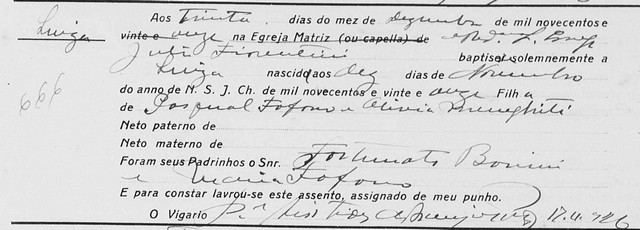 Aos trinta dias do mez de Dezembro de mil novecentos e
Luiza vinte e onze na Egreja Matriz (ou capella) de
Julio Fiorentini baptisei solemnemente a
Luiza nascida aos dez dias de Novembro
666 do anno de N. S. J. Ch. de mil novecentos e vinte e onze Filha
de Pasqual Fofono e Olivia Meneghiti
Neto paterno de
Neto materno de
Foram seus Padrinhos o Snr. Fortunato Bonini
e Maria Fofono
E para constar lavrou-se este assento, assignado de meu punho.
O Vigario Pe